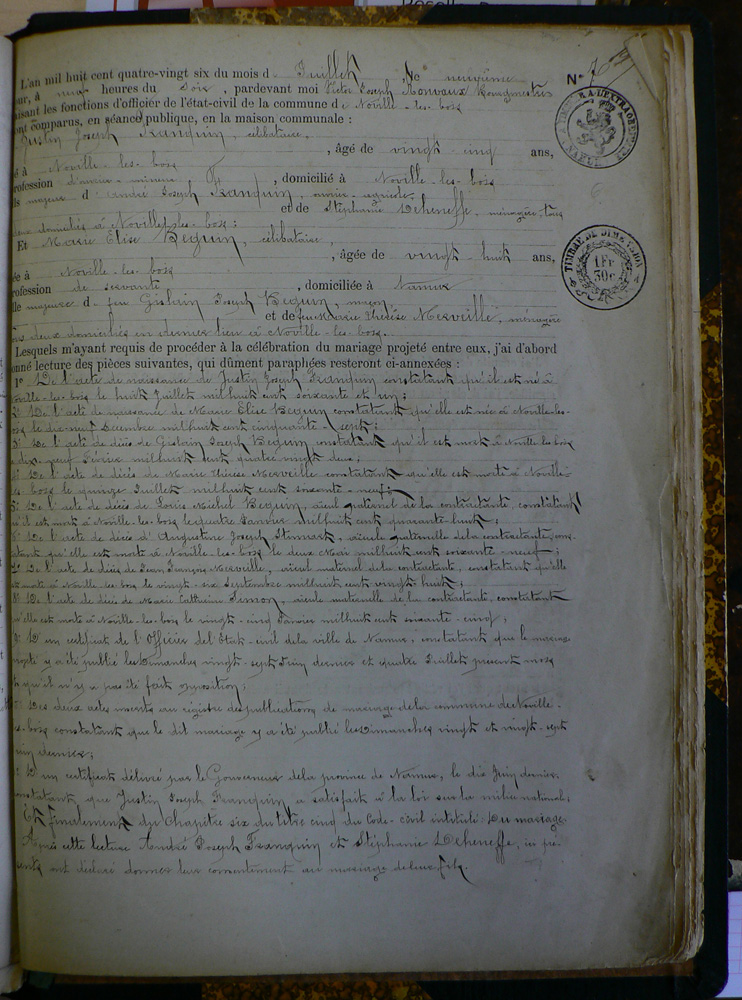 L'an mil huit cent quatre-vingt six du mois d Juillet, le neuvième
our, à neuf heures du soir, pardevant moi Victor Joseph Bourgmestre
aisant les fonctions d'officier de l'état-civil de la commune de Noville-les-bois
ont comparus, en séance publique, en la maison communale :
Justin Joseph Franquin, célibataire
, âgé de vingt cinq ans,
é à Noville-les-bois
rofession d'ouvrier mineur, domicilié à Noville-les-bois
ls majeur d'André Joseph Franquin, ouvrier agricole
et de Stéphanie Deheneffe, ménagère, tous
deux domiciliés à Noville-les-bois ;
Et Marie Elise Bequin, célibataire
, âgée de vingt-huit ans,
ée à Noville-les-bois
rofession de servante, domiciliée à Namur
lle majeure d feu Gislain Joseph Bequin, maçon
et de feu Marie Thérèse Merveille, ménagère
ous deux domiciliés en dernier lieu à Noville-les-bois.
Lesquels m'ayant requis de procéder à la célébration du mariage projeté entre eux, j'ai d'abord
onné lecture des pièces suivantes, qui dûment paraphées resteront ci-annexées :
1° De l'acte de naissance de Justin Joseph Franquin constatant qu'il est né à
Noville-les-bois le huit Juillet mil huit cent soixante et un ;
2° De l'acte de naissance de Marie Elise Bequin constatant qu'elle est née à Noville-les-
bois le dix-neuf Décembre mil huit cent cinquante-sept ;
3° De l'acte de décès de Gislain Joseph Bequin constatant qu'il est mort à Noville-les-bois
le dix-neuf Février mil huit cent quatre vingt deux ;
4° De l'acte de décès de Marie Thérèse Merveille constatant qu'elle est morte à Noville-
les-bois le quinze Juillet mil huit cent soixante-neuf ;
5° De l'acte de décès de Louis Michel Bequin, aïeul paternel de la contractante, constatant
qu'il est mort à Noville-les-bois le quatre Janvier mil huit cent quarante-huit ;
6° De l'acte de décès d'Augustine Joseph Stimart, aïeule paternelle de la contractante, cons-
tatant qu'elle est morte à Noville-les-bois le deux Mai mil huit cent soixante-neuf ;
7° De l'acte de décès de Jean François Merveille, aïeul maternel de la contractante, constatant qu'il
est mort à Noville-les-bois le vingt-six Septembre mil huit cent vingt-huit ;
8° De l'acte de décès de Marie Catherine Simon, aïeule maternelle de la contractante, constatant
qu'elle est morte à Noville-les-bois le vingt-cinq Janvier mil huit cent soixante-cinq ;
9° D'un certificat de l'Officier de l'Etat-civil de la ville de Namur, constatant que le mariage
projeté y a été publié les Dimanches vingt-sept Juin dernier et quatre Juillet présent mois
et qu'il n'y a pas été fait opposition ;
Des deux actes inscrits au registre des publications de mariage de la commune de Noville-
les-bois constatant que le dit mariage y a été publié les Dimanches vingt et vingt-sept
Juin dernier ;
D'un certificat délivré par le Gouverneur de la province de Namur, le dix Juin dernier,
constatant que Justin Joseph Franquin a satisfait à la loi sur la milice nationale ;
Et finalement du Chapitre six du titre cinq du Code-civil intitulé : Du mariage.
Après cette lecture André Joseph Franquin et Stéphanie Deheneffe, ici pré-
sents ont déclaré donner leur consentement au mariage de leur fils.
N°
TIMBRE DE DIMENSION
1 Fr
30 c